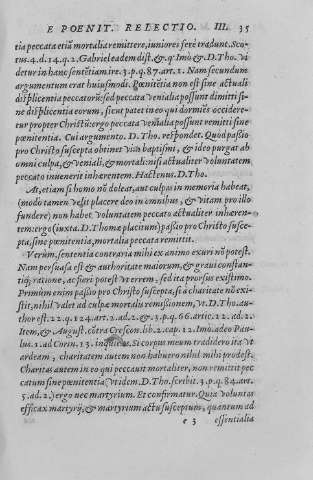 E POENIT. RELECTIO. III. 35
tia peccata etiã mortalia remittere, iuniores ferè tradunt. Sco-
tus. 4. d. 14. q. 2. Gabriel eadem dist. & q. Imò & D. Tho. vi
detur in hanc sentẽtiam ire. 3. p. q. 87. art. 1. Nam secundum
argumentum erat huiusmodi. Pœnitẽtia non est sine actuali
displicentia peccatorũ: sed peccata venialia possunt dimitti si-
ne displicentia eorum, sicut patet in eo qui dormiẽs occidere-
tur propter Christũ: ergo peccata venialia possunt remitti sine
pœnitentia. Cui argumento. D. Tho. respõdet. Quod passio
pro Christo suscepta obtinet vim baptismi, & ideo purgat ab
omni culpa, & veniali, & mortali: nisi actualiter voluntatem
peccato inuenerit inhærentem. Hactenus. D. Tho.
At, etiam si homo nõ doleat, aut culpas in memoria habeat,
(modo tamen velit placere deo in omnibus, & vitam pro illo
fundere) non habet voluntatem peccato actualiter inhæren-
tem: ergo (iuxta. D. Thomæ placitum) passio pro Christo susce-
pta, sine pœnitentia, mortalia peccata remittit.
Verùm, sententia contraria mihi ex animo exuri nõ potest.
Nam persuasa est & authoritate maiorum, & graui constan-
tiq; ratione, ac fieri potest vt errem, sed ita prorsus existimo.
Primùm enim passio pro Christo suscepta, si à charitate nõ exi-
stit, nihil valet ad culpæ mortalis remissionem, vt. D. Tho. au-
thor est. 22. q. 124. art. 2. ad. 2. & 3. p. q. 66. artic. 12. ad. 2.
Item, & August. cõtra Crescon. lib. 2. cap. 12. Imò. adeo Pau-
lus. 1. ad Corin. 13. inquit Si corpus meum tradidero ita vt
ardeam, charitatem autem non habuero nihil mihi prodest.
Charitas autem in eo qui peccauit mortaliter, non remittit pec
catum sine pœnitentia (vt idem. D. Tho. scribit. 3. p. q. 84. art.
5. ad. 2.) ergo nec martyrium. Et confirmatur. Quia voluntas
efficax martyrij, & martyrium actu susceptum, quantum ad
e 3 essentialia